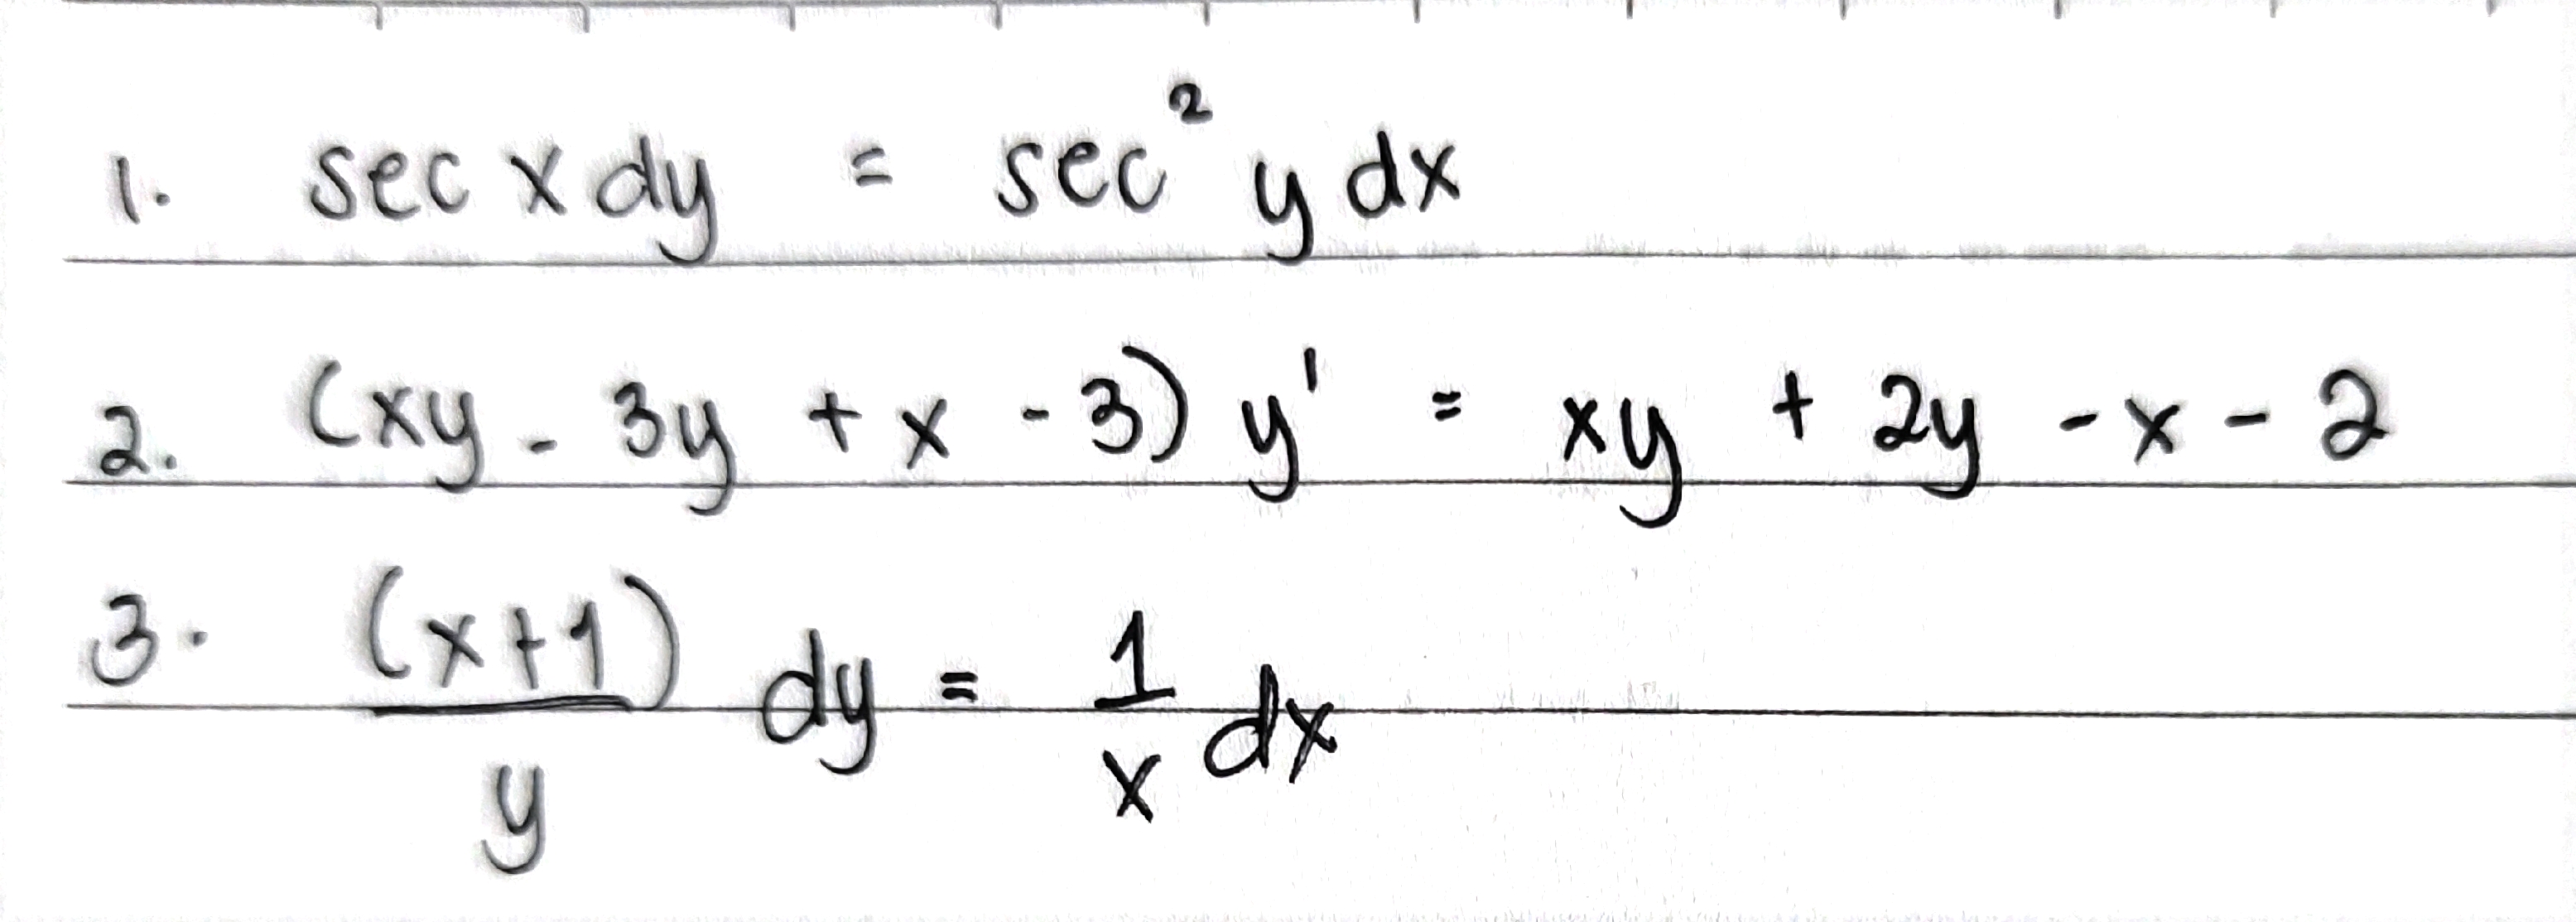 1. sec x dy = sec² y dx
2. (xy - 3y + x - 3) y' = xy + 2y - x - 2
3. (x+1)/y dy = 1/x dx